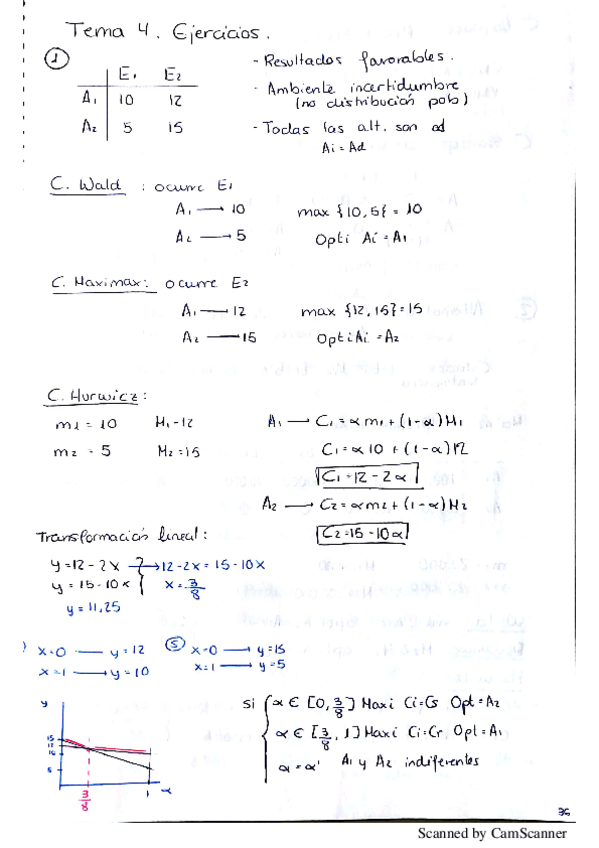 Tema 4. Ejercicios.
① E₁ E₂
A₁ 10 12
A₂ 5 15
- Resultados favorables.
- Ambiente incertidumbre
(no distribución prob)
- Todas las alt. son ad
Ai = Ad
C. Wald : ocurre E₁
A₁ → 10 max {10,5} = 10
A₂ → 5 Opti Ai = A₁
C. Maximax: ocurre E₂
A₁ → 12 max {12,15} = 15
A₂ → 15 Opti Ai = A₂
C. Hurwicz:
m1 = 10 M₁ = 12 A₁ → C₁ = α m₁ + (1-α) M₁
m2 = 5 M₂ = 15 C₁ = α 10 + (1-α) 12
C₁ = 12 - 2α
A₂ → C₂ = α m₂ + (1-α) M₂
C₂ = 15 - 10α
Transformación lineal:
y = 12 - 2x → 12 - 2x = 15 - 10x
y = 15 - 10x x = 3/8
y = 11,25
) x = 0 — y = 12 ⑤ x = 0 → y = 15
x = 1 → y = 10 x = 1 → y = 5
y
15
12
10
5
3/8 1 α
si α ∈ [0, 3/8] Maxi Ci = C₂ Opt = A₂
α ∈ [3/8, 1] Maxi Ci = C₁ Opt = A₁
α = α' A₁ y A₂ indiferentes
36
Scanned by CamScanner